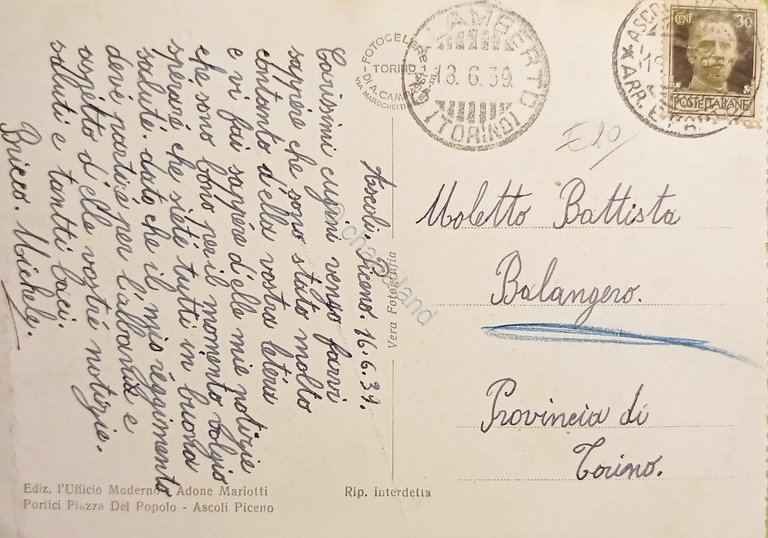 Ascoli, Piceno. 16.6.39.
Carissimi cugini vengo farvi
sappere che sono stato molto
contanto d'ella vostra letera
e vi fai sappere d'elle mie notizie
che sono bono per il momento volgio
sperare che siete tutti in buona
salute. dato che il mio regimento
devi partire per l'albania e
aspetto d'elle vostre notizie.
saluti e tantti baci.
Bricco. Michele.
FOTOCELERE
TORINO
DI A. CAMPASSI
VIA MAROCHETTI
LAMBERTO
18.6.39
(TORINO)
ASCO
ARR.
CENT. 30
POSTE ITALIANE
E10
Moletto Battista
Balangero.
Provincia di
Torino.
Vera Fotografia
Ediz. l'Ufficio Moderno - Adone Mariotti
Portici Piazza Del Popolo - Ascoli Piceno
Rip. interdetta